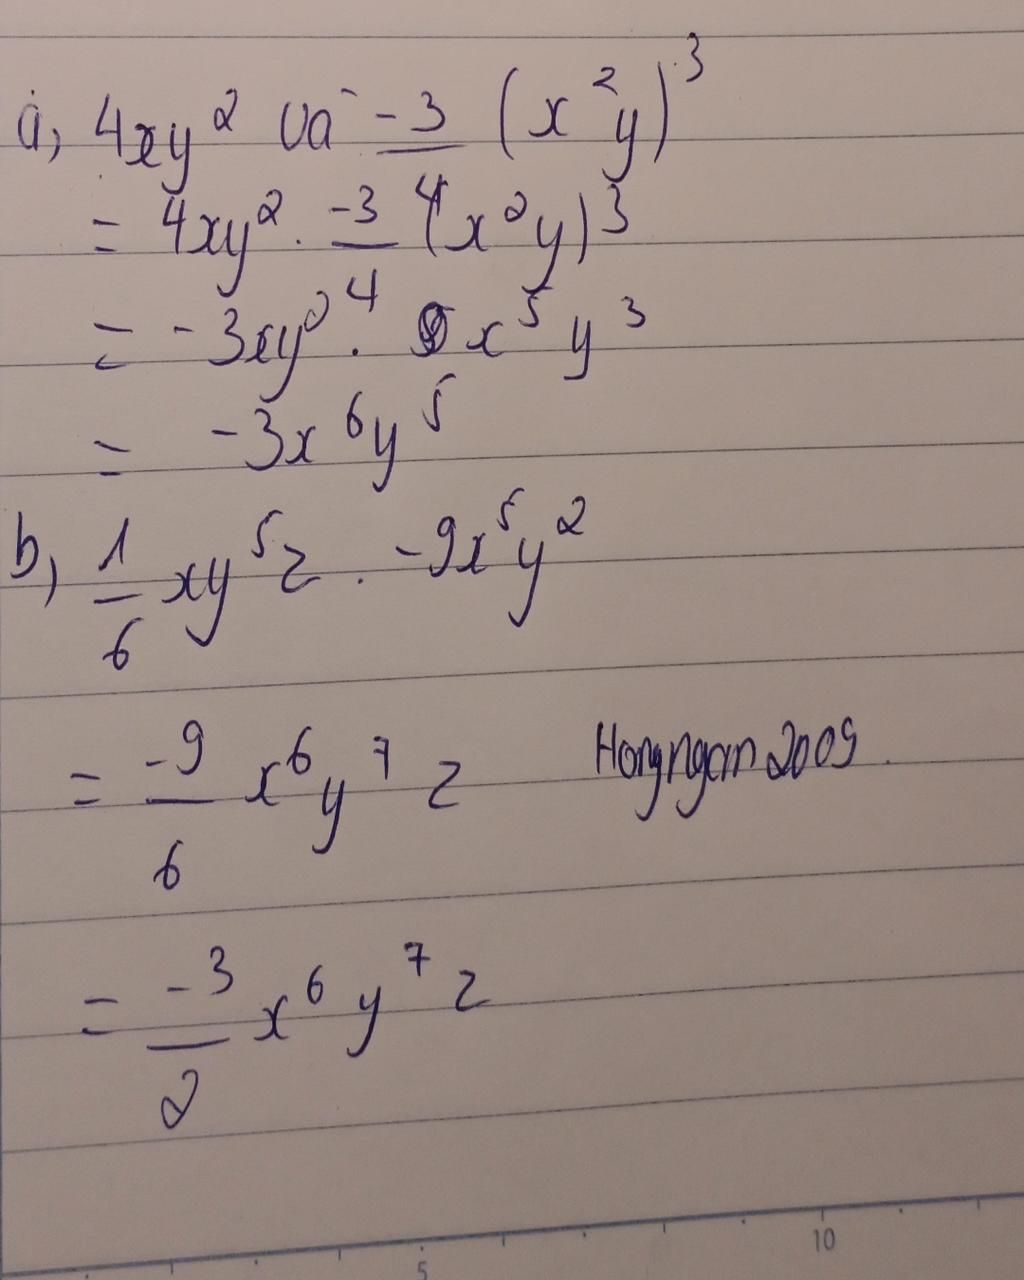 a, 4xy² và -3/4 (x²y)³
= 4xy² . -3/4 (x²y)³
= -3xy² . x⁵y³
= -3x⁶y⁵
b, 1/6 xy⁵z . -9x⁵y²
= -9/6 x⁶y⁷z
Hongngan2009.
= -3/2 x⁶y⁷z
5 10